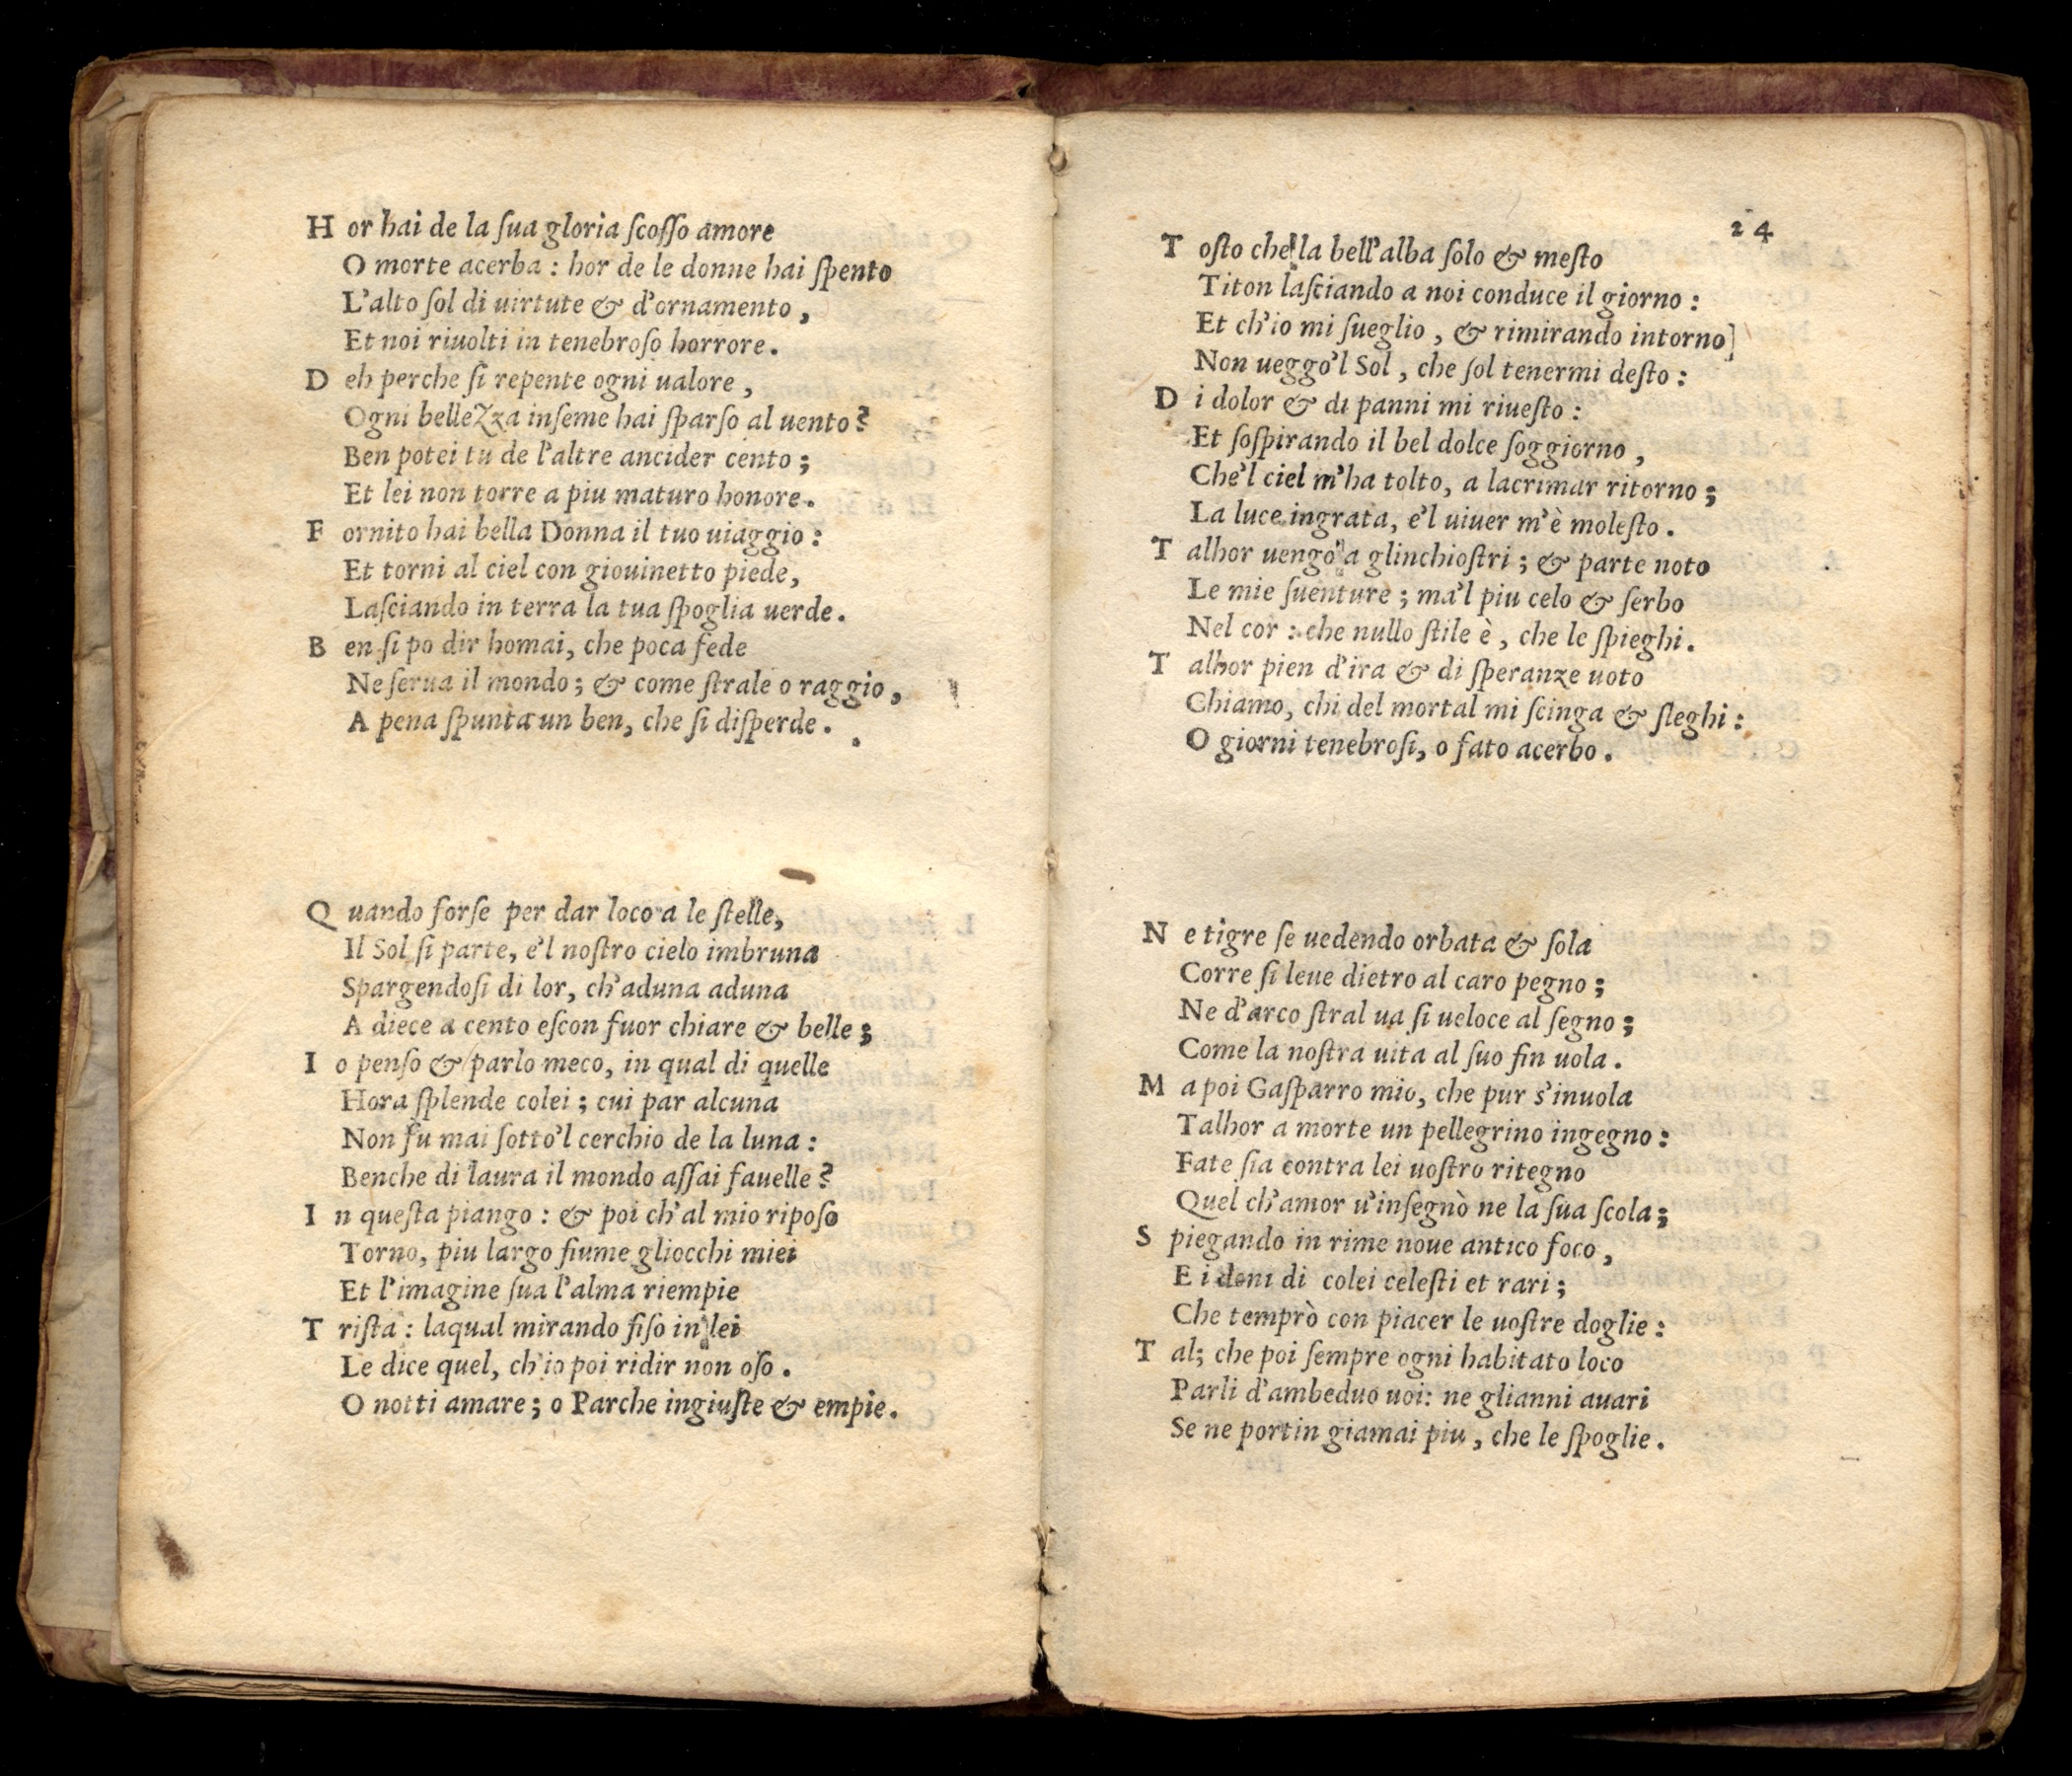 H or hai de la ſua gloria ſcoſſo amore
O morte acerba : hor de le donne hai ſpento
L'alto ſol di uirtute & d'ornamento ,
Et noi riuolti in tenebroſo horrore.
D eh perche ſi repente ogni ualore ,
Ogni belleZza inſeme hai ſparſo al uento?
Ben potei tu de l'altre ancider cento ;
Et lei non torre a piu maturo honore.
F ornito hai bella Donna il tuo uiaggio :
Et torni al ciel con giouinetto piede,
Laſciando in terra la tua ſpoglia uerde.
B en ſi po dir homai, che poca fede
Ne ſerua il mondo ; & come ſtrale o raggio ,
A pena ſpunta un ben, che ſi diſperde.
Q uando forſe per dar loco a le ſtelle,
Il Sol ſi parte, e'l noſtro cielo imbruna
Spargendoſi di lor, ch'aduna aduna
A diece a cento eſcon fuor chiare & belle ;
I o penſo & parlo meco, in qual di quelle
Hora ſplende colei ; cui par alcuna
Non fu mai ſotto'l cerchio de la luna :
Benche di laura il mondo aſſai fauelle ?
I n queſta piango : & poi ch'al mio ripoſo
Torno, piu largo fiume gliocchi miei
Et l'imagine ſua l'alma riempie
T riſta : laqual mirando fiſo in lei
Le dice quel, ch'io poi ridir non oſo.
O notti amare ; o Parche ingiuſte & empie.
24
T oſto che la bell'alba ſolo & meſto
Titon laſciando a noi conduce il giorno :
Et ch'io mi ſueglio , & rimirando intorno]
Non ueggo'l Sol , che ſol tenermi deſto :
D i dolor & di panni mi riueſto :
Et ſoſpirando il bel dolce ſoggiorno ,
Che'l ciel m'ha tolto, a lacrimar ritorno ;
La luce ingrata, e'l uiuer m'è moleſto.
T alhor uengo a glinchioſtri ; & parte noto
Le mie ſuenture ; ma'l piu celo & ſerbo
Nel cor : che nullo ſtile è , che le ſpieghi.
T alhor pien d'ira & di ſperanze uoto
Chiamo, chi del mortal mi ſcinga & ſleghi :
O giorni tenebroſi, o fato acerbo.
N e tigre ſe uedendo orbata & ſola
Corre ſi leue dietro al caro pegno ;
Ne d'arco ſtral ua ſi ueloce al ſegno ;
Come la noſtra uita al ſuo fin uola.
M a poi Gaſparro mio, che pur s'inuola
Talhor a morte un pellegrino ingegno :
Fate ſia contra lei uoſtro ritegno
Quel ch'amor u'inſegnò ne la ſua ſcola ;
S piegando in rime noue antico foco ,
E i doni di colei celeſti et rari ;
Che temprò con piacer le uoſtre doglie :
T al; che poi ſempre ogni habitato loco
Parli d'ambeduo uoi: ne glianni auari
Se ne portin giamai piu , che le ſpoglie.